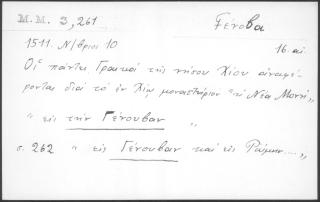 M.M. 3,261
Γένοβα
1511. Ν/βριος 10
16. αι.
Οἱ πάντες Γραικοὶ τῆς νήσου Χίου ἀναφέ-
ρονται διὰ τὸ ἐν Χίῳ μοναστήριον "ἡ Νέα Μονή"
" εἰς τὴν Γένουβαν "
σ. 262 " εἰς Γένουβαν καὶ εἰς Ρώμην... "